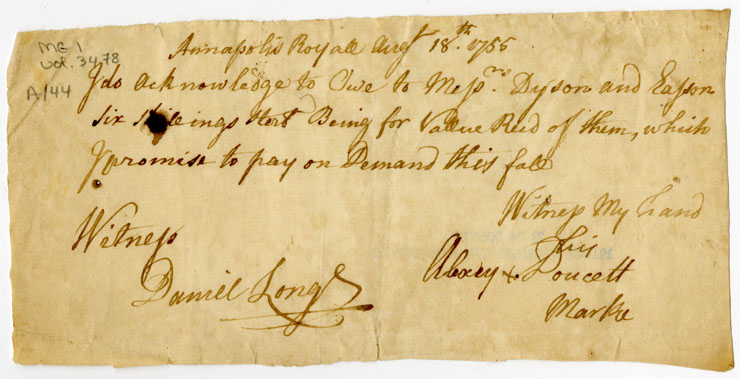 MG 1
vol. 3478
A/44
Annapolis Royall Augt 18th. 1755
I do acknowledge to Owe to Messrs. Dyson and Easson
six shileings Being for Value Recd of them, which
I promise to pay on Demand this fall
Witness My hand
Witness
his
Daniel Long
Alexey x Doucett
Marke